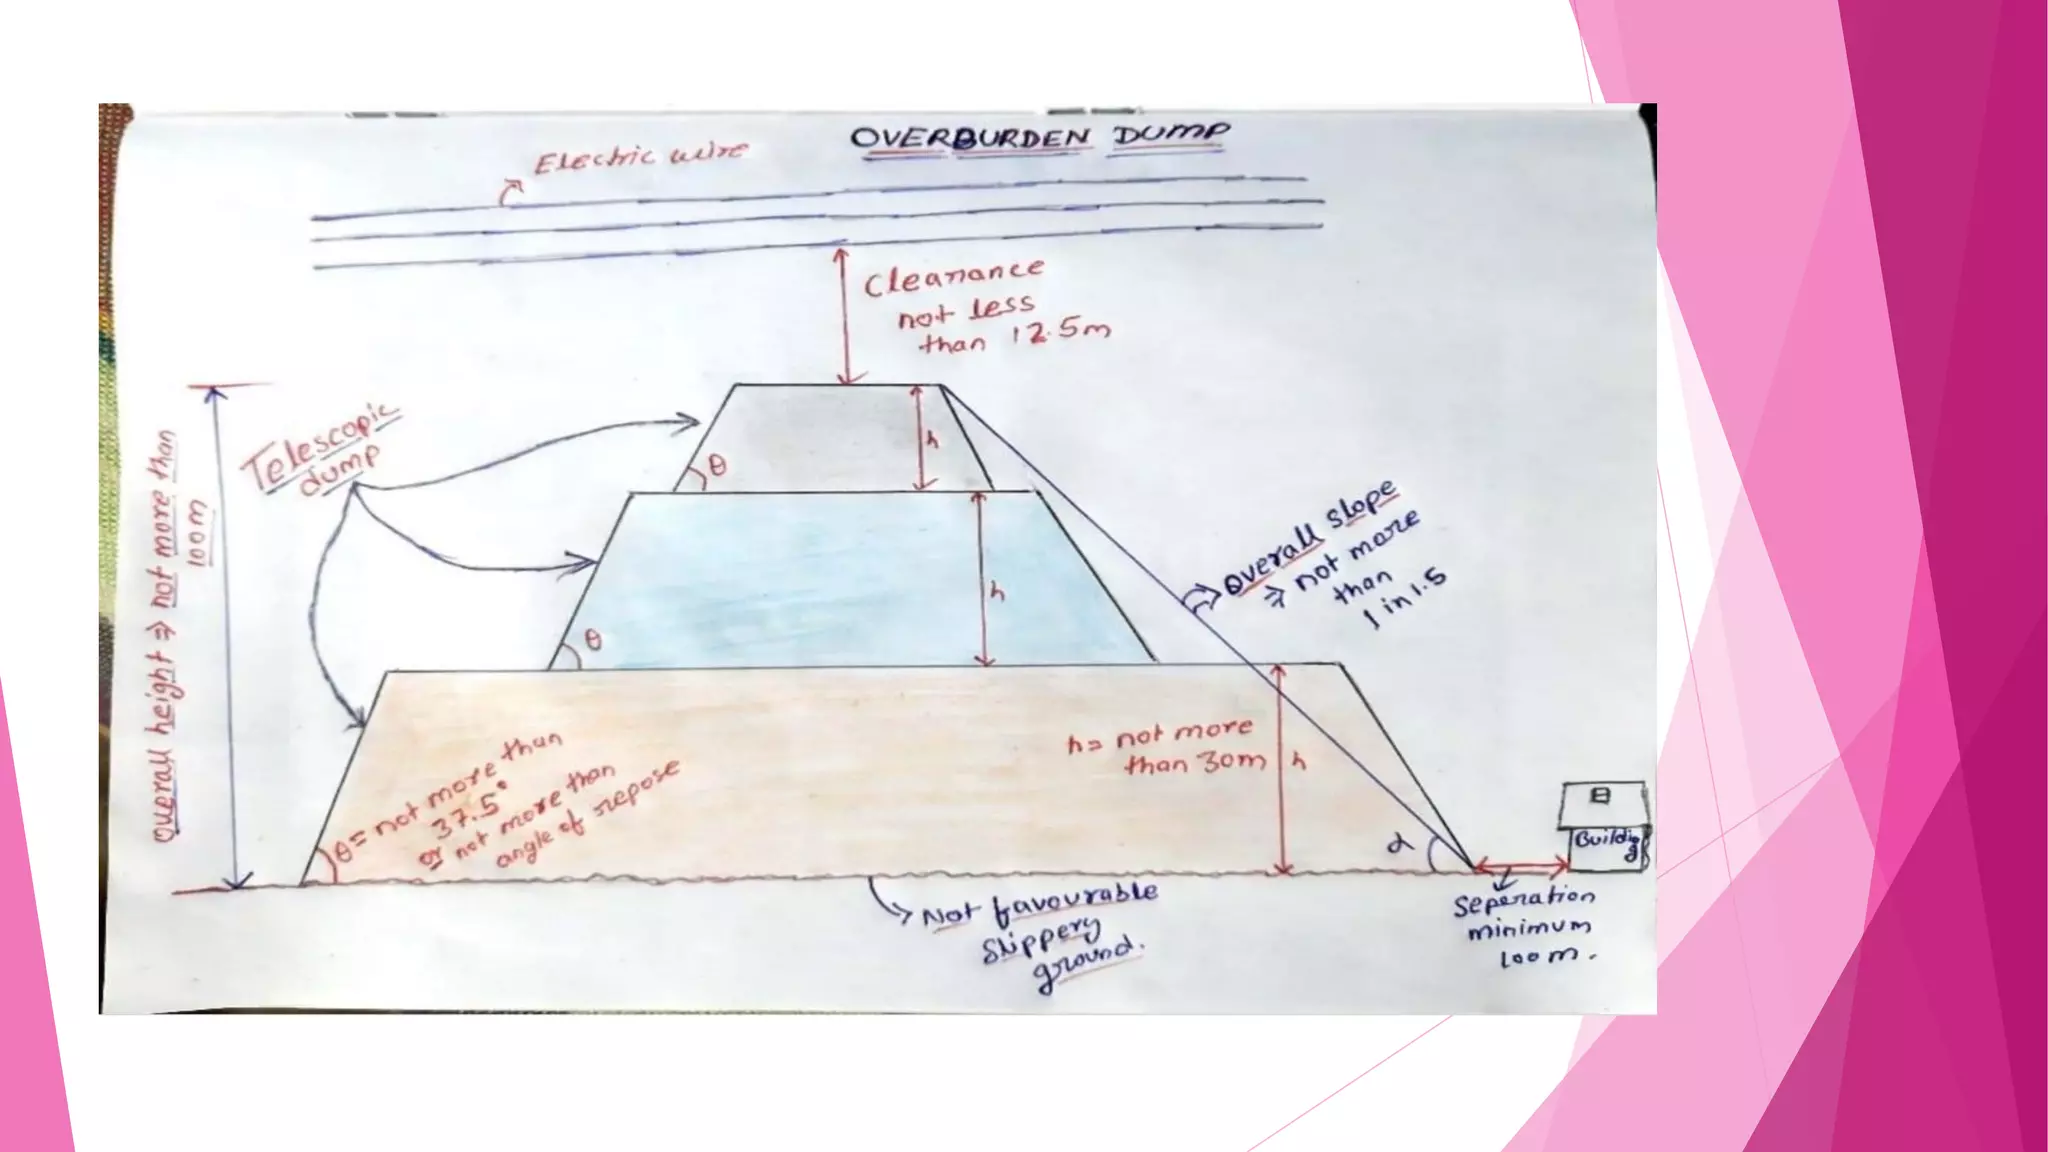 OVERBURDEN DUMP
Electric wire
Clearance
not less
than 12.5m
Telescopic
dump
Overall height ⇒ not more than
100m
h
θ
h
θ
Overall slope
⇒ not more
than
1 in 1.5
h= not more
than 30m
h
θ = not more than
37.5°
or not more than
angle of repose
α
Buildi
g
Not favourable
slippery
ground.
Seperation
minimum
100m.